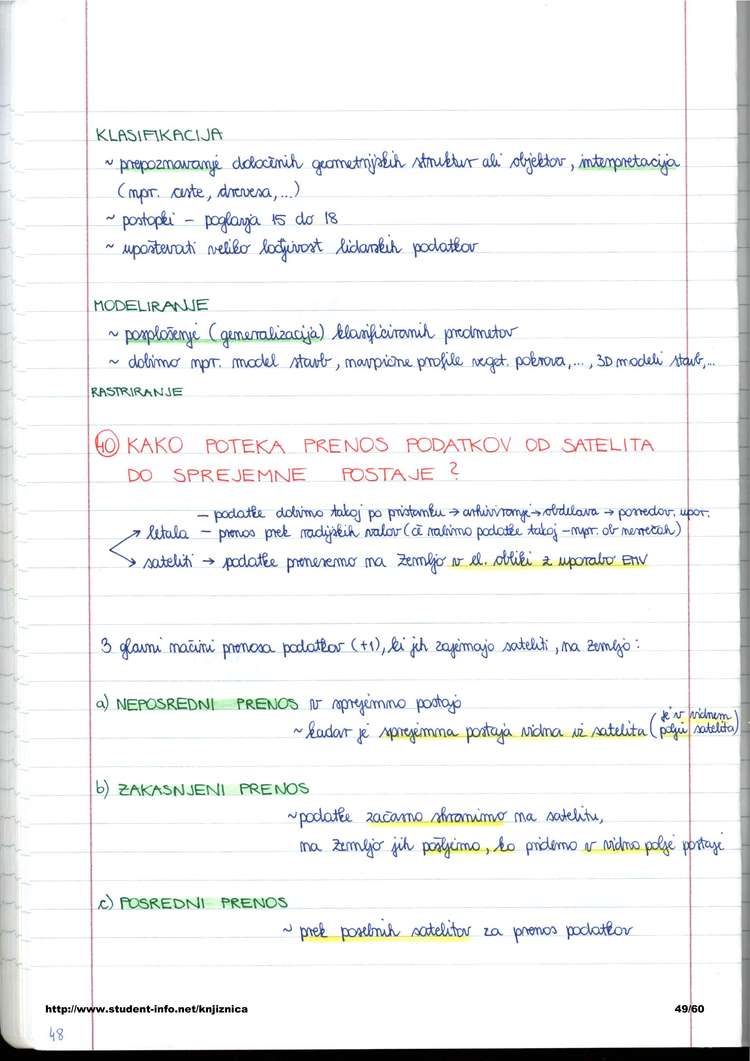 KLASIFIKACIJA
~ prepoznavanje določenih geometrijskih struktur ali objektov, interpretacija
(npr. ceste, drevesa,...)
~ postopki – poglavja 15 do 18
~ upoštevati veliko ločljivost lidarskih podatkov
MODELIRANJE
~ posplošenje (generalizacija) klasificiranih predmetov
~ dobimo npr. model stavb, navpične profile veget. pokrova,..., 3D modeli stavb,...
RASTRIRANJE
40 KAKO POTEKA PRENOS PODATKOV OD SATELITA
DO SPREJEMNE POSTAJE?
– podatke dobimo takoj po pristanku → arhiviranje → obdelava → posredov. upor.
→ letala – prenos prek radijskih valov (če rabimo podatke takoj – npr. ob nesrečah)
→ sateliti → podatke prenesemo na Zemljo v el. obliki z uporabo EMV
3 glavni načini prenosa podatkov (+1), ki jih zajemajo sateliti, na zemljo:
a) NEPOSREDNI PRENOS v sprejemno postajo
~ kadar je sprejemna postaja vidna iz satelita (je v vidnem polju satelita)
b) ZAKASNJENI PRENOS
~ podatke začasno shranimo na satelitu,
na Zemljo jih pošljemo, ko pridemo v vidno polje postaje
c) POSREDNI PRENOS
~ prek posebnih satelitov za prenos podatkov
http://www.student-info.net/knjiznica 49/60
48